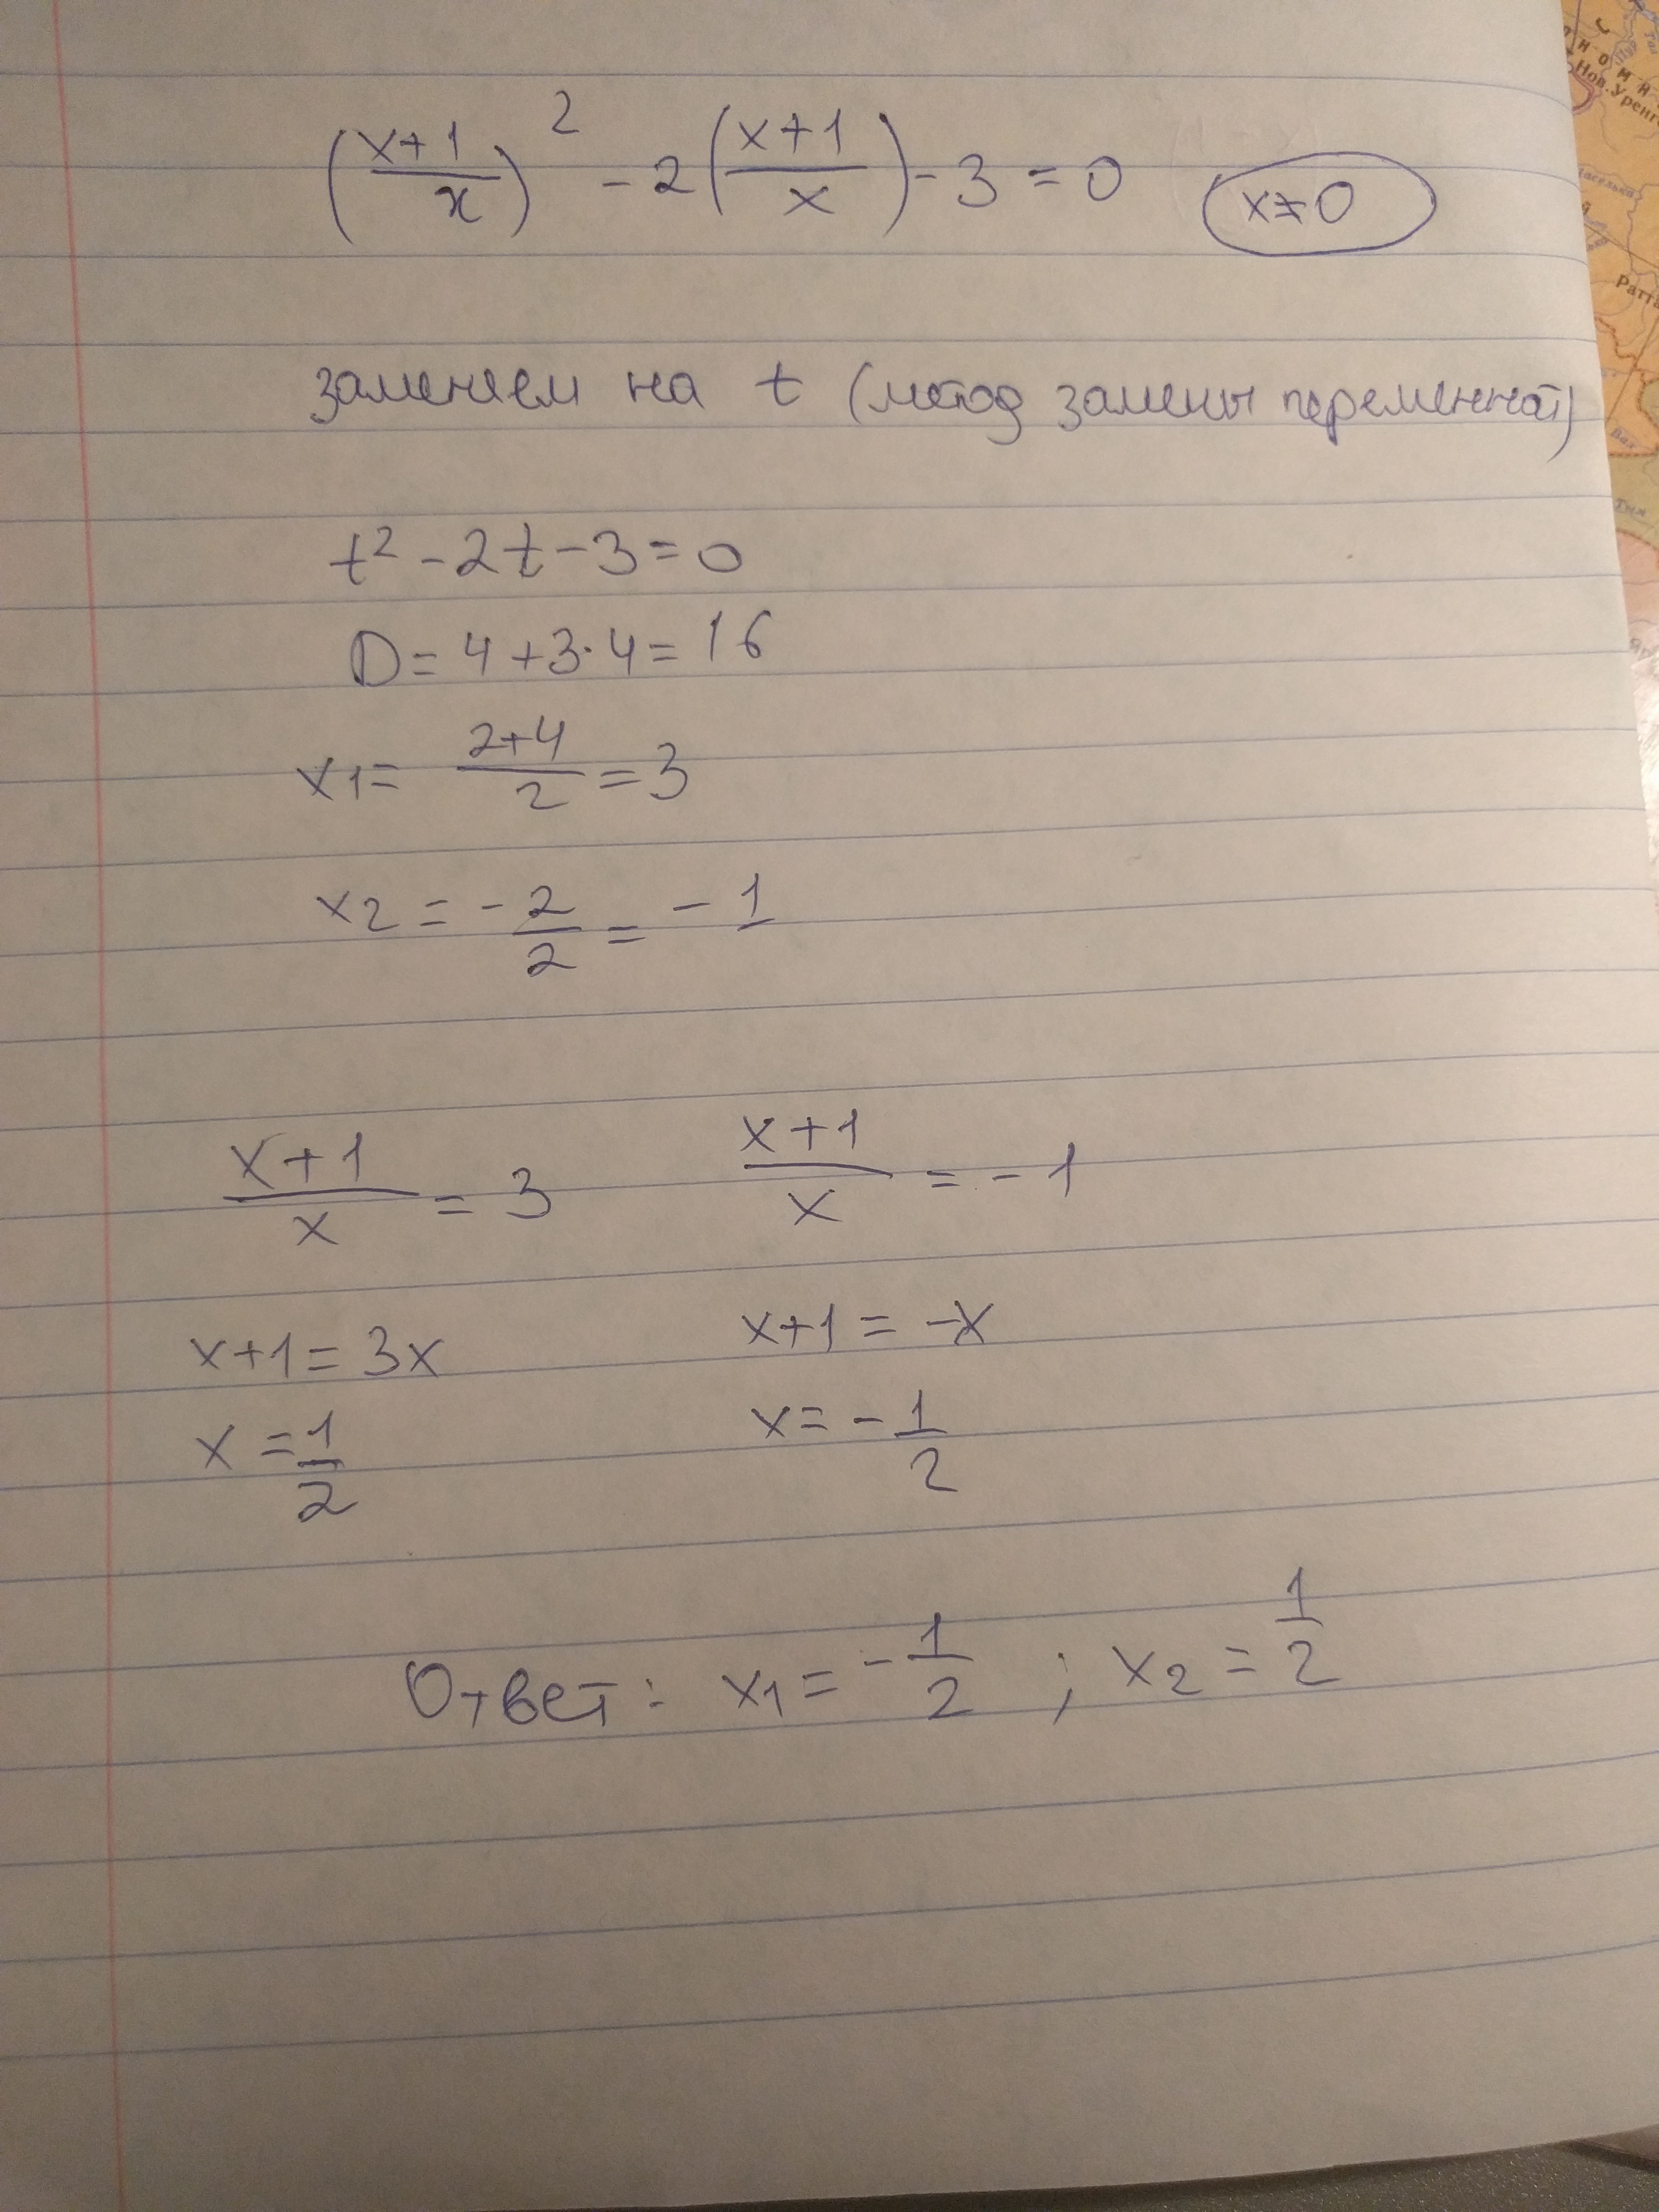 (x+1/x)² - 2(x+1/x) - 3 = 0 x≠0
заменяем на t (метод замены переменной)
t² - 2t - 3 = 0
D = 4 + 3·4 = 16
x1 = 2+4/2 = 3
x2 = -2/2 = -1
x+1/x = 3 x+1/x = -1
x+1 = 3x x+1 = -x
x = 1/2 x = -1/2
Ответ: x1 = -1/2 ; x2 = 1/2
Нов.Уренг
Ратта